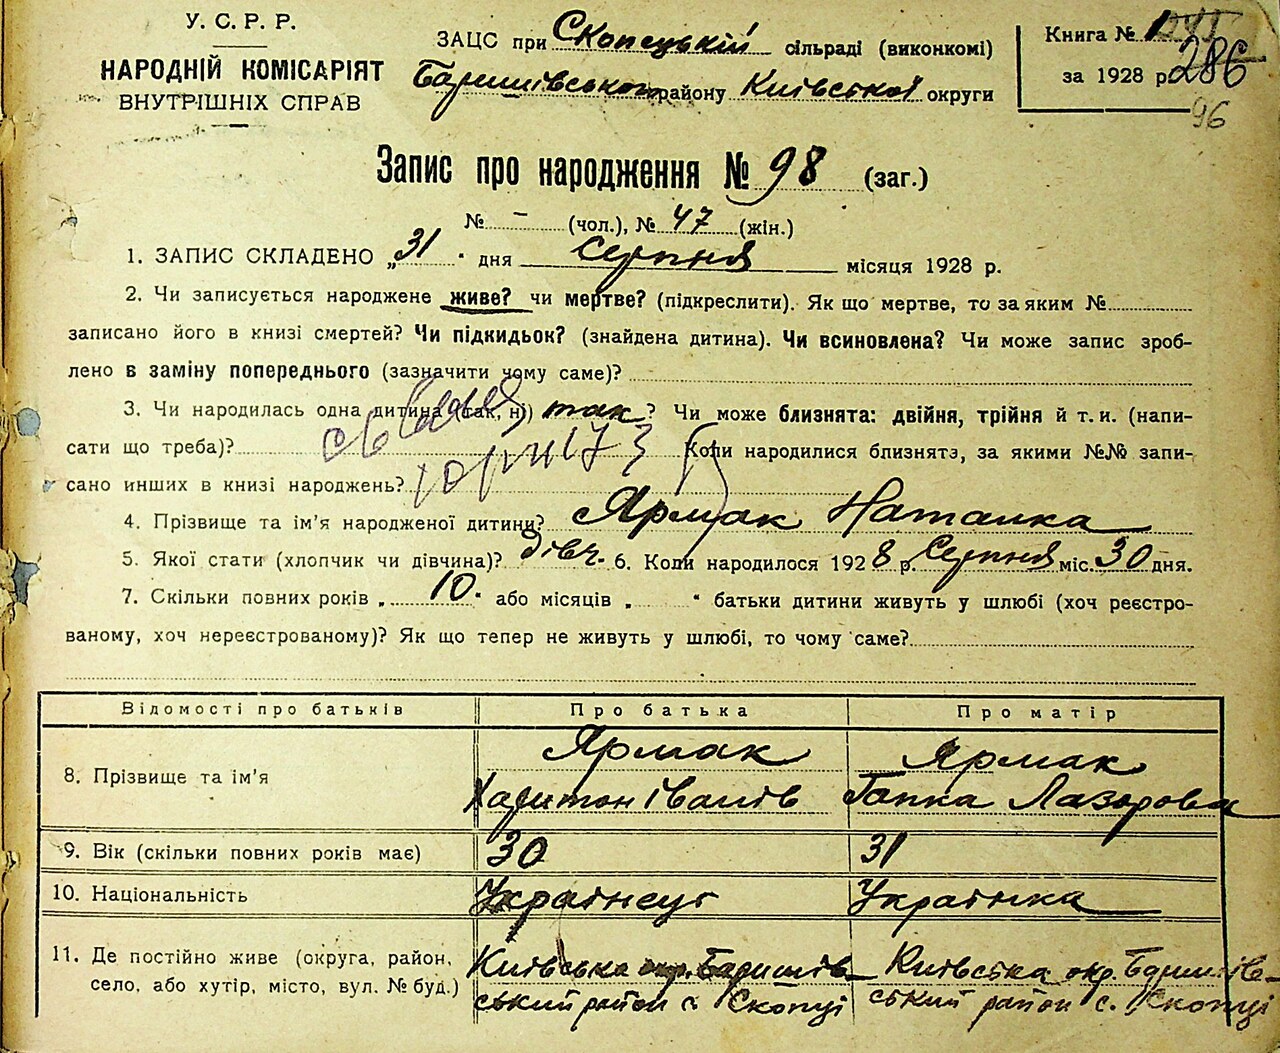 У. С. Р. Р.
НАРОДНІЙ КОМІСАРІЯТ
ВНУТРІШНІХ СПРАВ
ЗАЦС при Скопецькій сільраді (виконкомі)
Баришівського району Київської округи
Книга № 1
за 1928 р. 286
96
Запис про народження № 98 (заг.)
№ – (чол.), № 47 (жін.)
1. ЗАПИС СКЛАДЕНО „31" дня Серпня місяця 1928 р.
2. Чи записується народжене живе? чи мертве? (підкреслити). Як що мертве, то за яким №
записано його в книзі смертей? Чи підкидьок? (знайдена дитина). Чи всиновлена? Чи може запис зроб-
лено в заміну попереднього (зазначити чому саме)?
3. Чи народилась одна дитина (так, ні) так? Чи може близнята: двійня, трійня й т. и. (напи-
сати що треба)? Коли народилися близнята, за якими №№ запи-
сано инших в книзі народжень?
4. Прізвище та ім'я народженої дитини? Ярмак Наталка
5. Якої стати (хлопчик чи дівчина)? дівч. 6. Коли народилося 1928 р. Серпня міс. 30 дня.
7. Скільки повних років „10" або місяців „ " батьки дитини живуть у шлюбі (хоч реєстро-
ваному, хоч нереєстрованому)? Як що тепер не живуть у шлюбі, то чому саме?
Відомості про батьків Про батька Про матір
8. Прізвище та ім'я Ярмак Харитон Іванів Ярмак Гапка Лазорова
9. Вік (скільки повних років має) 30 31
10. Національність Українець Українка
11. Де постійно живе (округа, район, Київська окр. Баришів- Київська окр. Баришів-
село, або хутір, місто, вул. № буд.) ський район с. Скопці ський район с. Скопці